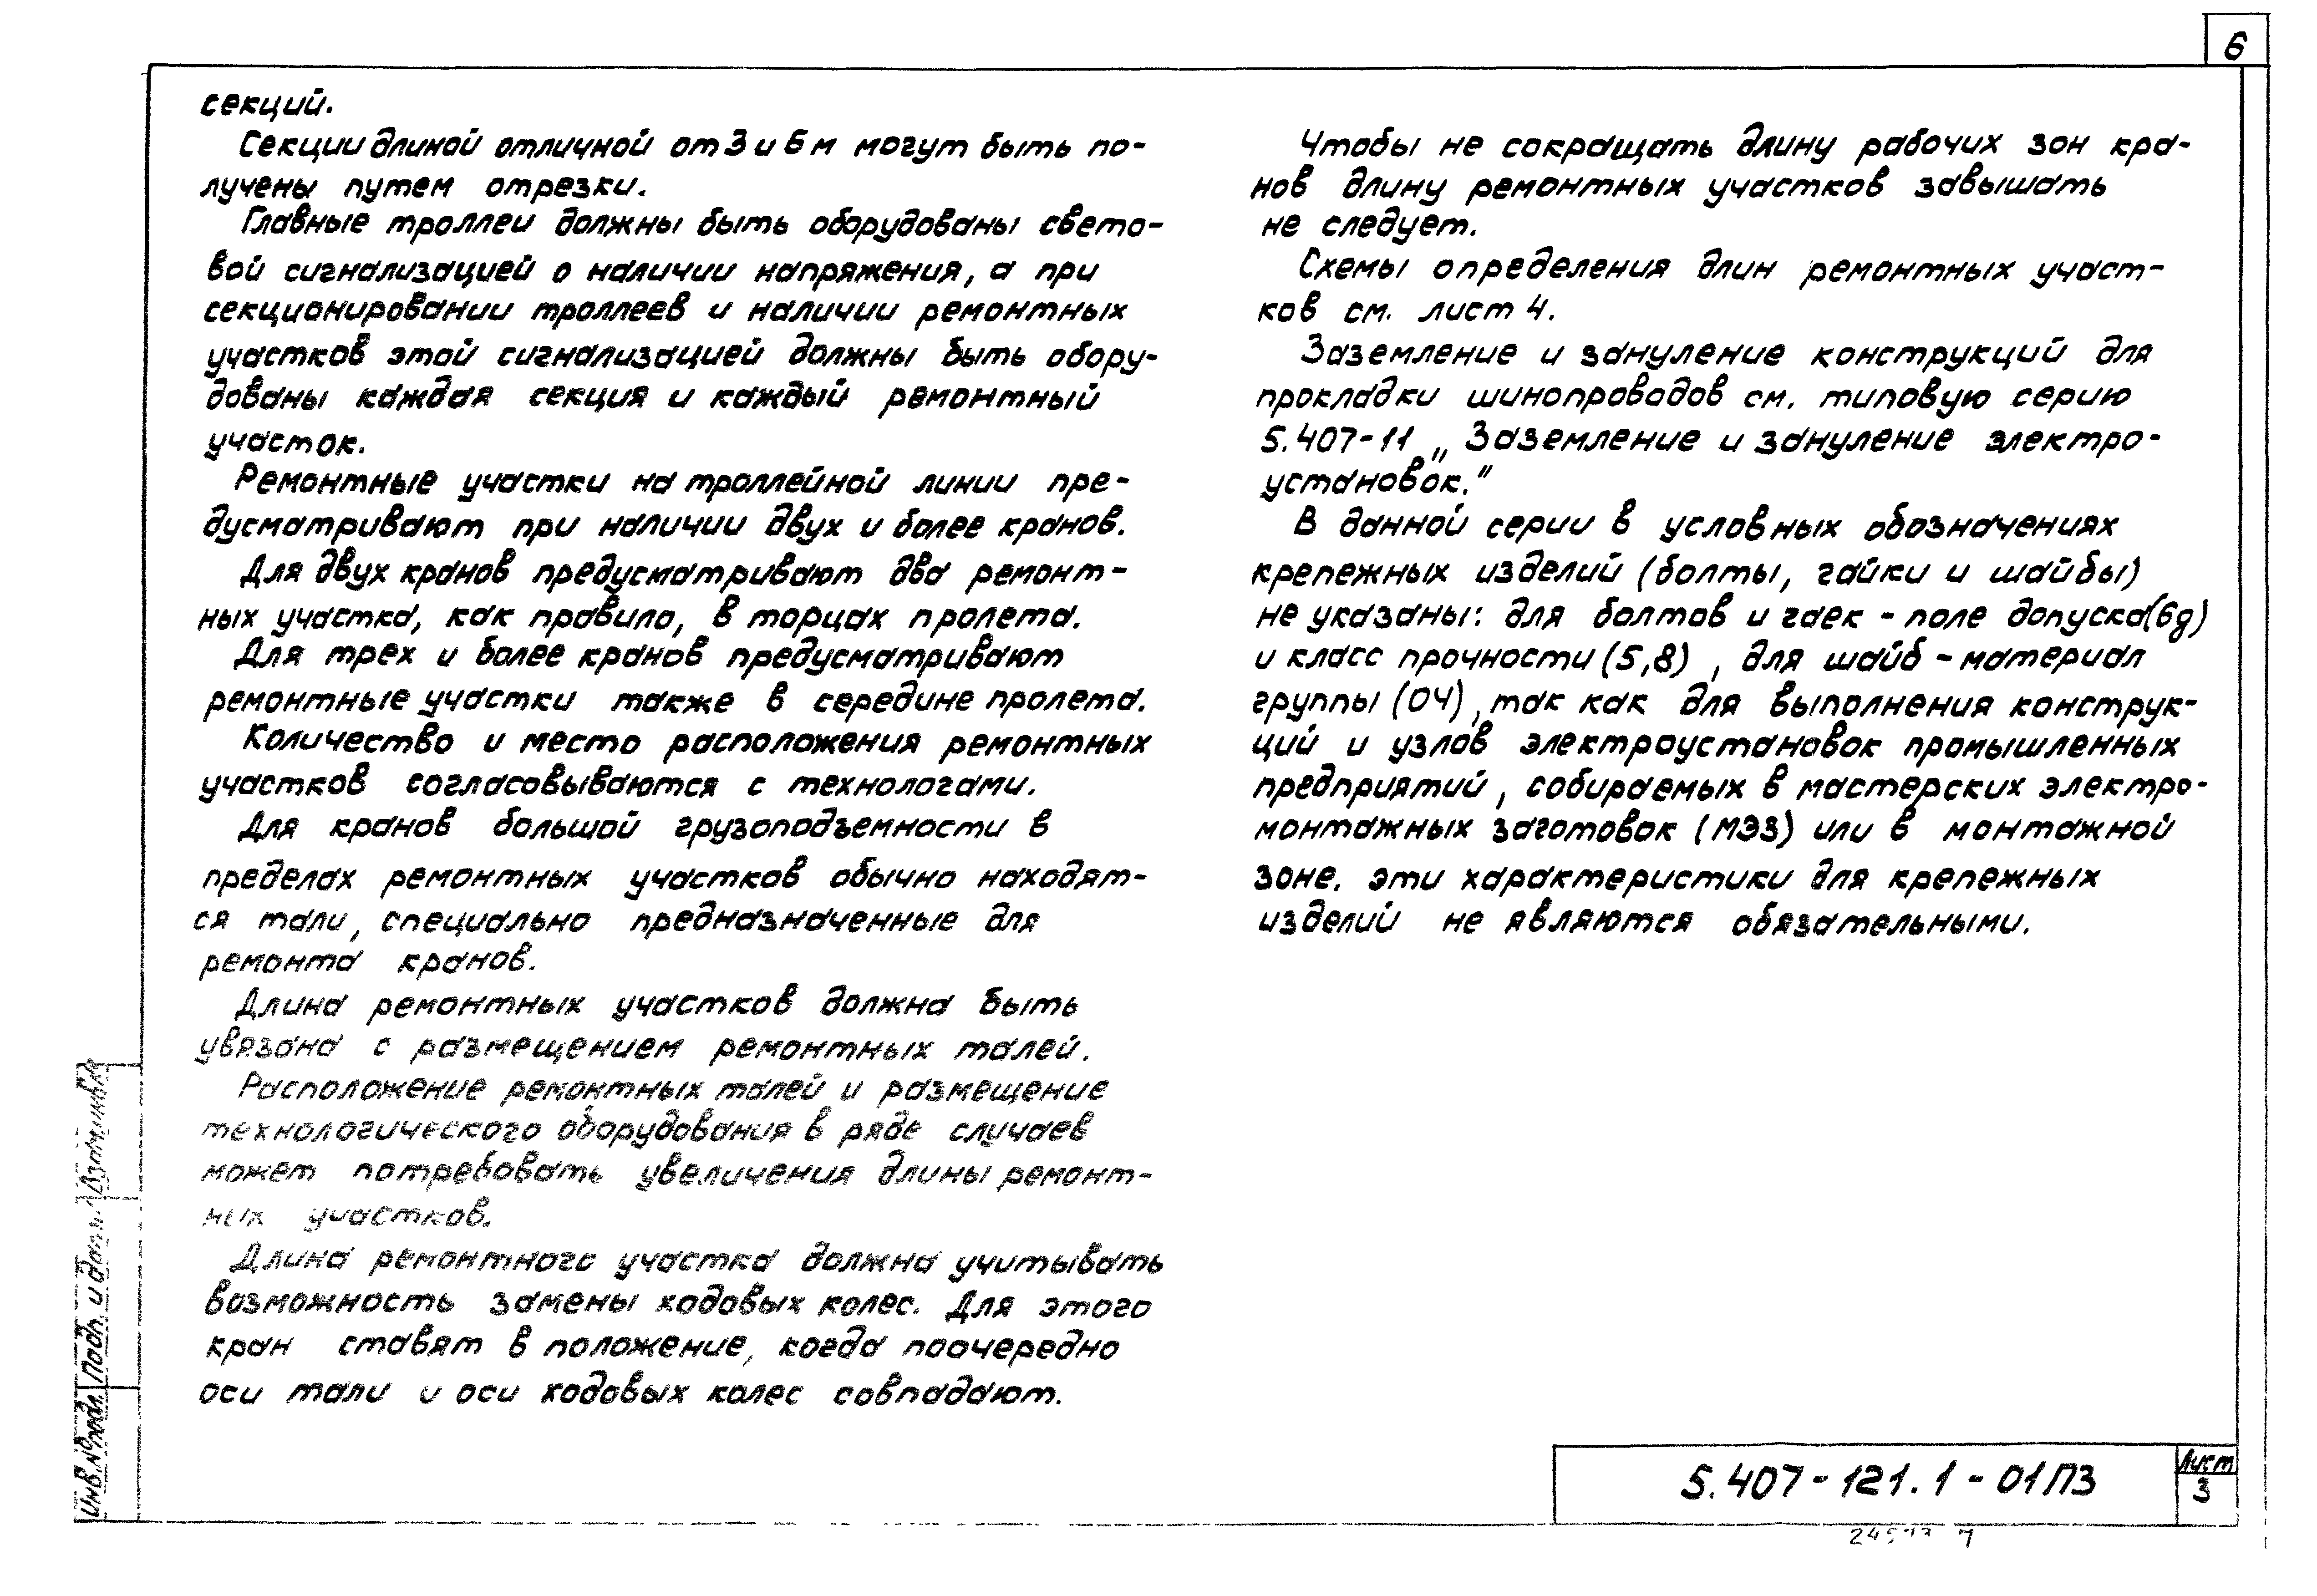 6
секций.
Секции длиной отличной от 3 и 6 м могут быть по-
лучены путем отрезки.
Главные троллеи должны быть оборудованы свето-
вой сигнализацией о наличии напряжения, а при
секционировании троллеев и наличии ремонтных
участков этой сигнализацией должны быть обору-
дованы каждая секция и каждый ремонтный
участок.
Ремонтные участки на троллейной линии пре-
дусматривают при наличии двух и более кранов.
Для двух кранов предусматривают два ремонт-
ных участка, как правило, в торцах пролета.
Для трех и более кранов предусматривают
ремонтные участки также в середине пролета.
Количество и место расположения ремонтных
участков согласовываются с технологами.
Для кранов большой грузоподъемности в
пределах ремонтных участков обычно находят-
ся тали, специально предназначенные для
ремонта кранов.
Длина ремонтных участков должна быть
увязана с размещением ремонтных талей.
Расположение ремонтных талей и размещение
технологического оборудования в ряде случаев
может потребовать увеличения длины ремонт-
ных участков.
Длина ремонтного участка должна учитывать
возможность замены ходовых колес. Для этого
кран ставят в положение, когда поочередно
оси тали и оси ходовых колес совпадают.
Чтобы не сокращать длину рабочих зон кра-
нов длину ремонтных участков завышать
не следует.
Схемы определения длин ремонтных участ-
ков см. лист 4.
Заземление и зануление конструкций для
прокладки шинопроводов см. типовую серию
5.407-11 „Заземление и зануление электро-
установок."
В данной серии в условных обозначениях
крепежных изделий (болты, гайки и шайбы)
не указаны: для болтов и гаек - поле допуска (6g)
и класс прочности (5,8), для шайб - материал
группы (04), так как для выполнения конструк-
ций и узлов электроустановок промышленных
предприятий, собираемых в мастерских электро-
монтажных заготовок (МЭЗ) или в монтажной
зоне, эти характеристики для крепежных
изделий не являются обязательными.
Инв. № подл. Подп. и дата Взам. инв. №
5.407-121.1-01ПЗ
Лист
3
7